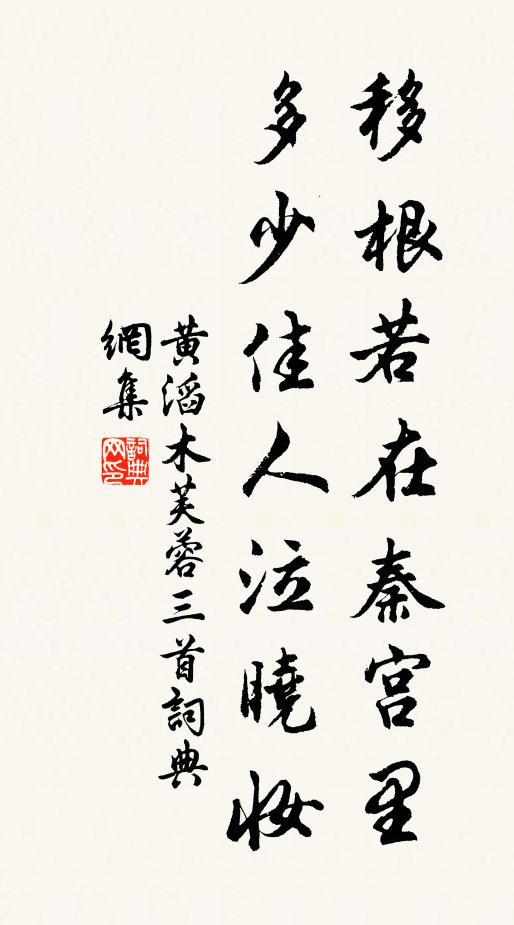 移根若在秦宫里
多少佳人泣曉妆
黄滔木芙蓉三首詞典
網集
詞典網印